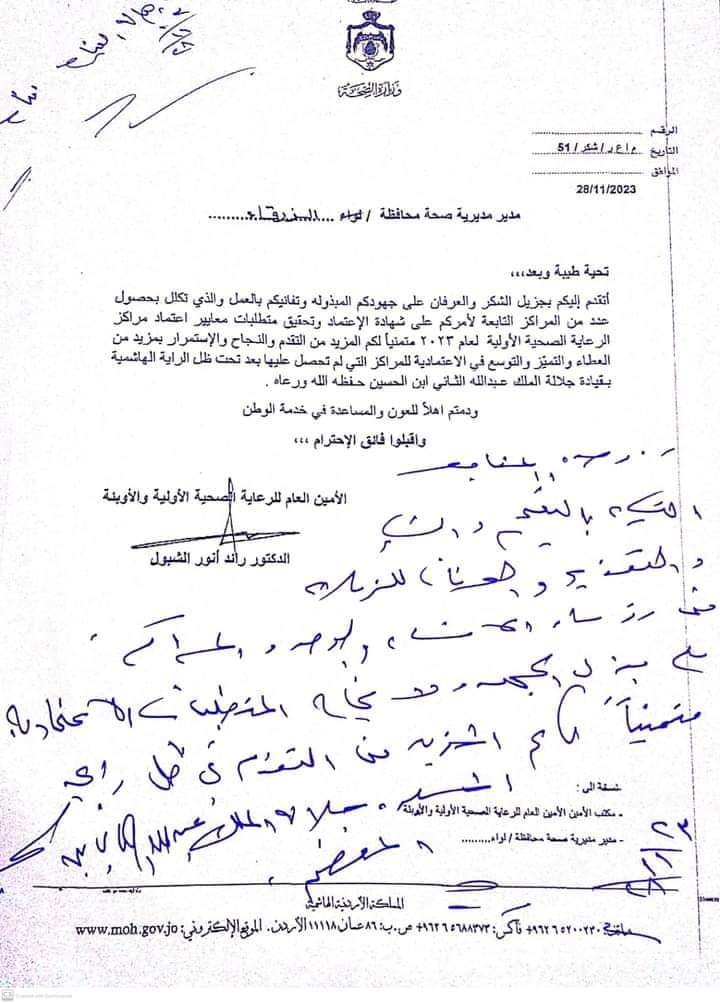 وزارة الصحة
الرقم
التاريخ م ا ع ر / شكر / 51
الموافق
28/11/2023
مدير مديرية صحة محافظة / لواء .... الزرقاء .........
تحية طيبة وبعد،،،
أتقدم إليكم بجزيل الشكر والعرفان على جهودكم المبذوله وتفانيكم بالعمل والذي تكلل بحصول
عدد من المراكز التابعة لأمركم على شهادة الإعتماد وتحقيق متطلبات معايير اعتماد مراكز
الرعاية الصحية الأولية لعام ٢٠٢٣ متمنياً لكم المزيد من التقدم والنجاح والإستمرار بمزيد من
العطاء والتميّز والتوسع في الاعتمادية للمراكز التي لم تحصل عليها بعد تحت ظل الراية الهاشمية
بقيادة جلالة الملك عبدالله الثاني ابن الحسين حفظه الله ورعاه .
ودمتم اهلاً للعون والمساعدة في خدمة الوطن
واقبلوا فائق الإحترام ،،،
الأمين العام للرعاية الصحية الأولية والأوبئة
الدكتور رائد أنور الشبول
والتقدير والعرفان للزملاء
من رؤساء الاقسام والمراكز
متمنياً لكم المزيد من التقدم في ظل راعي
جلالة الملك عبدالله الثاني
المعظم
نسخة الى :
- مكتب الأمين الأمين العام للرعاية الصحية الأولية والأوبئة
- مدير مديرية صحة محافظة / لواء.........
المملكة الأردنية الهاشمية
هاتف: ٥٢٠٠٢٣٠ ٩٦٢٦+ فاكس: ٥٦٨٨٣٧٣ ٩٦٢٦+ ص.ب: ٨٦ عمان ١١١١٨ الأردن. الموقع الإلكتروني: www.moh.gov.jo